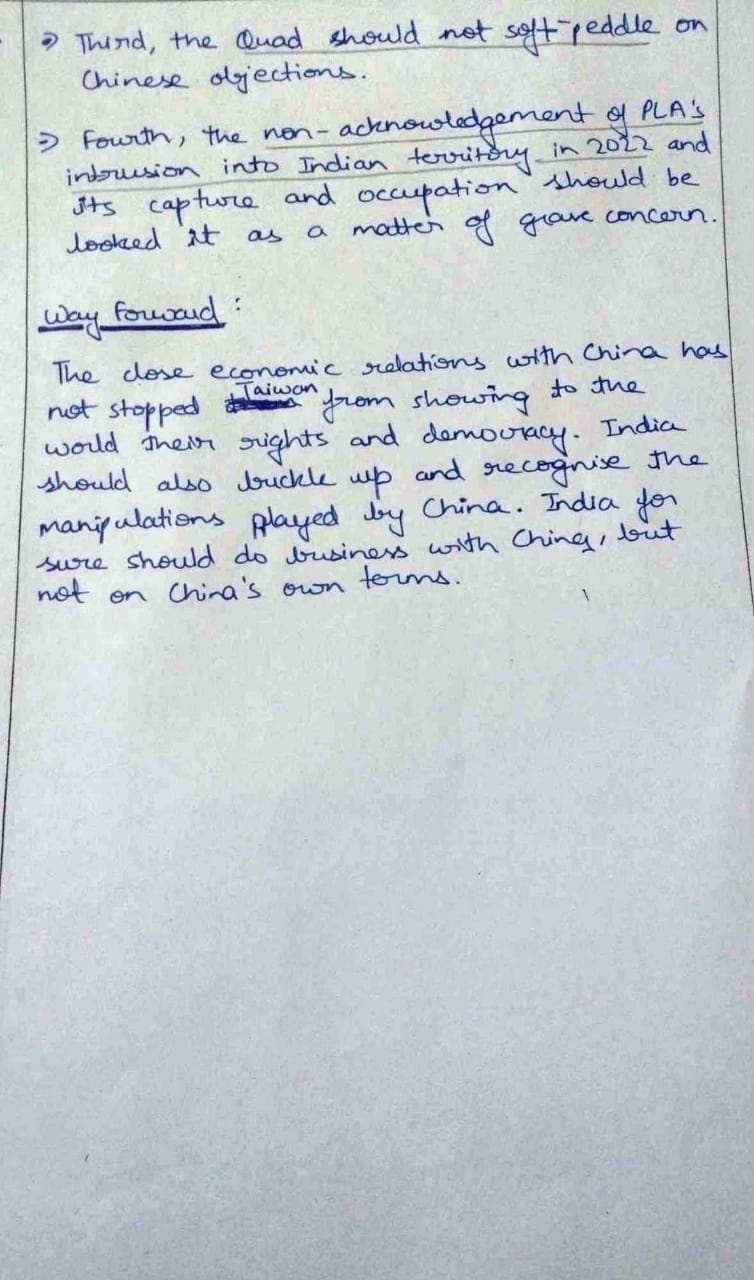 ⇒ Third, the Quad should not soft-peddle on
Chinese objections.
⇒ Fourth, the non-acknowledgement of PLA's
intrusion into Indian territory in 2022 and
its capture and occupation should be
looked it as a matter of grave concern.
Way Forward :
The close economic relations with China has
not stopped Taiwan from showing to the
world their rights and democracy. India
should also buckle up and recognise the
manipulations played by China. India for
sure should do business with China, but
not on China's own terms.